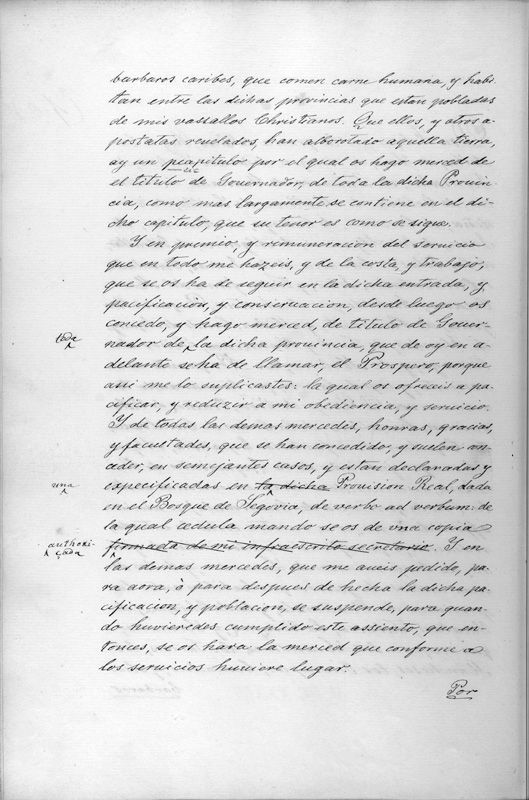 barbaros caribes, que comen carne humana, y habi-
tan entre las dichas provincias que estan pobladas
de mis vassallos Christianos. Que ellos, y otros a-
postatas revelados, han alborotado aquella tierra,
ay un pcapitulo por el qual os hago merced de
sic
el titulo de Governador, de toda la dicha Provin-
cia, como mas largamente se contiene en el di-
cho capitulo, que su tenor es como se sigue.
Y en premio, y remuneracion del servicio
que en todo me hazeis, y de la costa, y trabajo,
que se os ha de seguir en la dicha entrada, y
pacificación, y conservacion, desde luego os
concedo, y hago merced, de titulo de Gover-
toda
nador de la dicha provincia, que de oy en a-
delante se ha de llamar, el Prospero, porque
asi me lo suplicastes: la qual os ofreceis a pa-
cificar, y reduzir a mi obediencia, y servicio.
Y de todas las demas mercedes, honras, gracias,
y facultades, que se han concedido, y suelen con-
ceder, en semejantes casos, y estan declaradas y
una
expecificadas en la dicha Provision Real, dada
en el Bosque de Segovia, de verbo ad verbum: de
la qual cedula mando se os de vna copia
authori-
çada
firmada de mi infraescrito secretario. Y en
las demas mercedes, que me aueis pedido, pa-
ra aora, ò para despues de hecha la dicha pa-
cificacion, y poblacion, se suspende, para quan-
do huvieredes cumplido este assiento, que en-
tonces, se os hara la merced que conforme a
los servicios huviere lugar.
Por